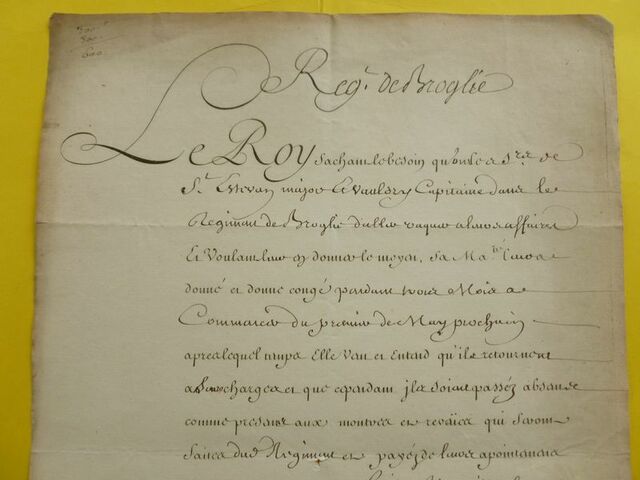 300
300
600
Reg.t de Broglie
Le Roy sachant le besoin qu'ont les Srs de
St Estevan major et Vaulsry Capitaine dans le
Regiment de Broglie d'aller vaquer a leurs affaires
Et Voulant leur en donner le moyen, sa Ma.té leur a
donné et donne congé pendant trois Mois a
Commancer du premier de May prochain
apres lequel temps Elle Veut et Entend qu'ils retournent
a leurs charges et que cependant jls soient passéz absens
comme presens aux montres et reveües qui seront
faites dud Regiment et payéz de leurs apointemens